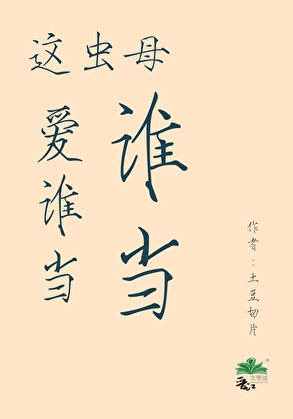 这虫母
爱谁当
谁当
作者：土豆切片
晋江
文學城